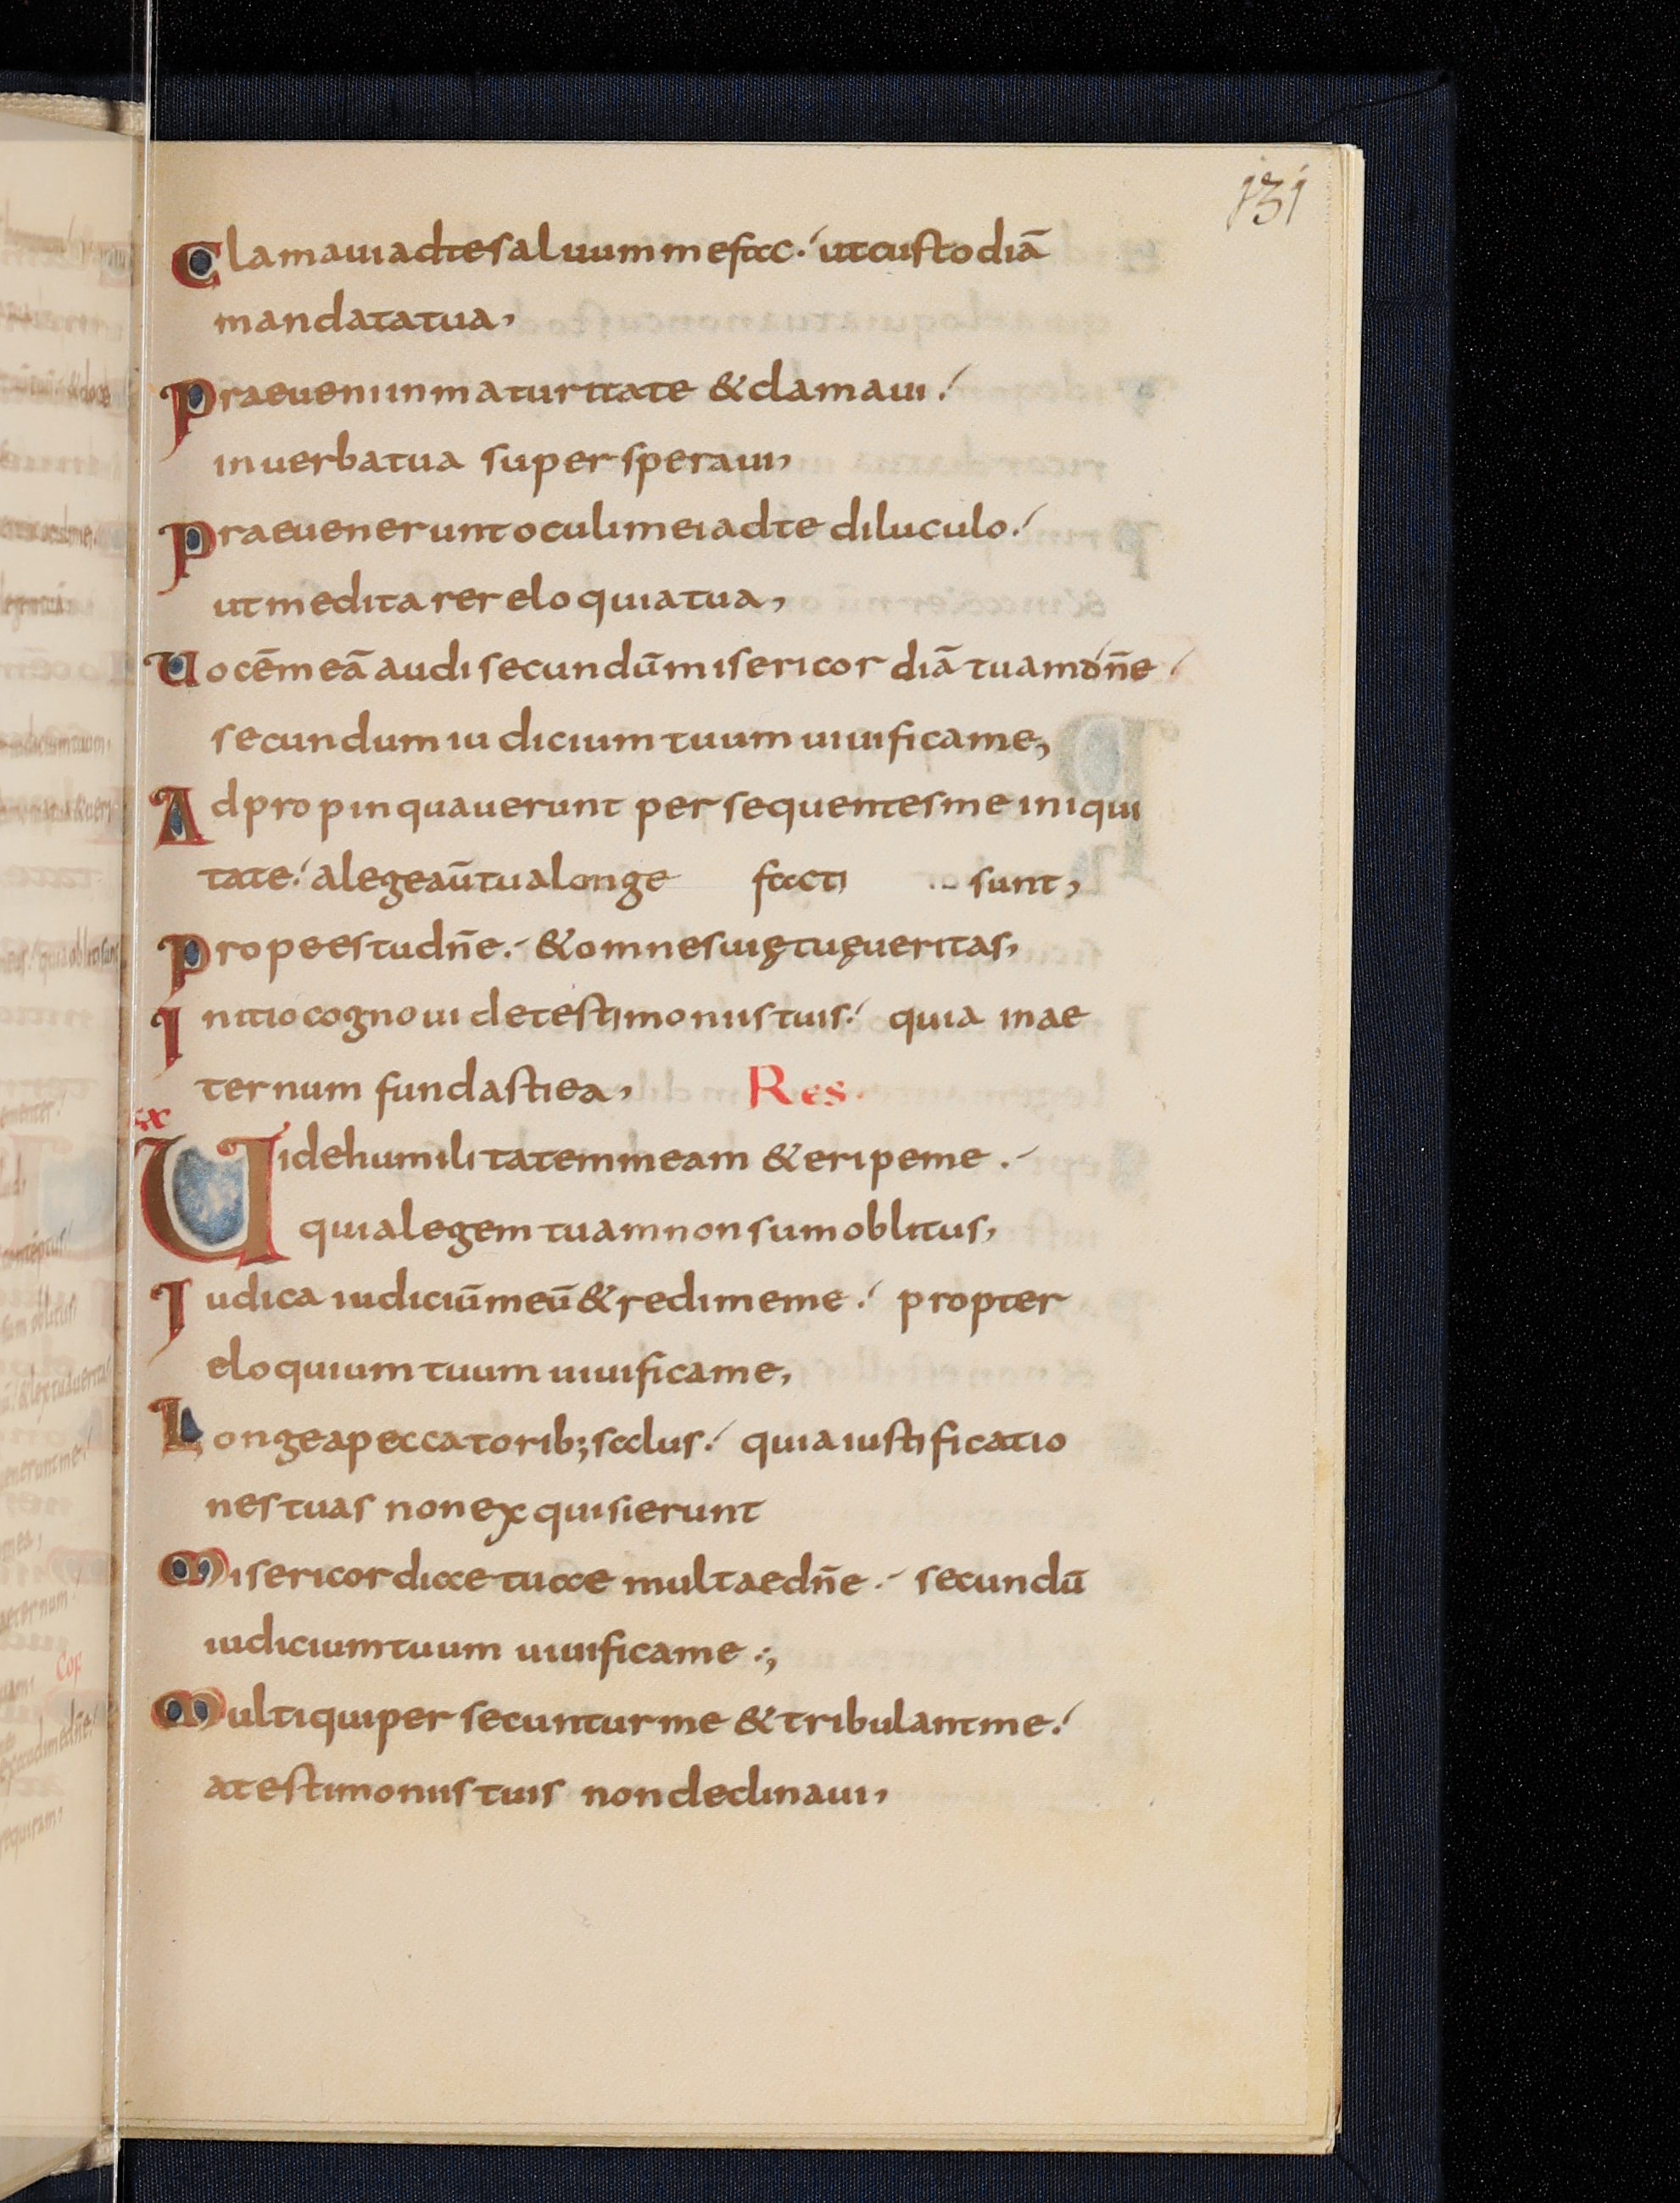 131
Clamaui ad te saluum me fac. ut custodiā
mandata tua,
Praeueni in maturitate & clamaui.
in uerba tua super speraui,
Praeuenerunt oculi mei ad te diluculo.
ut meditarer eloquia tua,
Uocē meā audi secundū misericordiā tuam dn̄e
secundum iudicium tuum uiuifica me,
Adpropinquauerunt persequentes me iniqui
tate. a lege aū tua longe facti sunt,
Prope es tu dn̄e. & omnes uię tuę ueritas,
Initio cognoui de testimoniis tuis. quia in ae
ternum fundasti ea, Res
Uide humilitatem meam & eripe me.
quia legem tuam non sum oblitus,
Iudica iudiciū meū & redime me. propter
eloquium tuum uiuifica me,
Longe a peccatorib; salus. quia iustificatio
nes tuas non exquisierunt
Misericordiae tuae multae dn̄e. secundū
iudicium tuum uiuifica me.,
Multi qui persecuntur me & tribulant me.
a testimoniis tuis non declinaui,